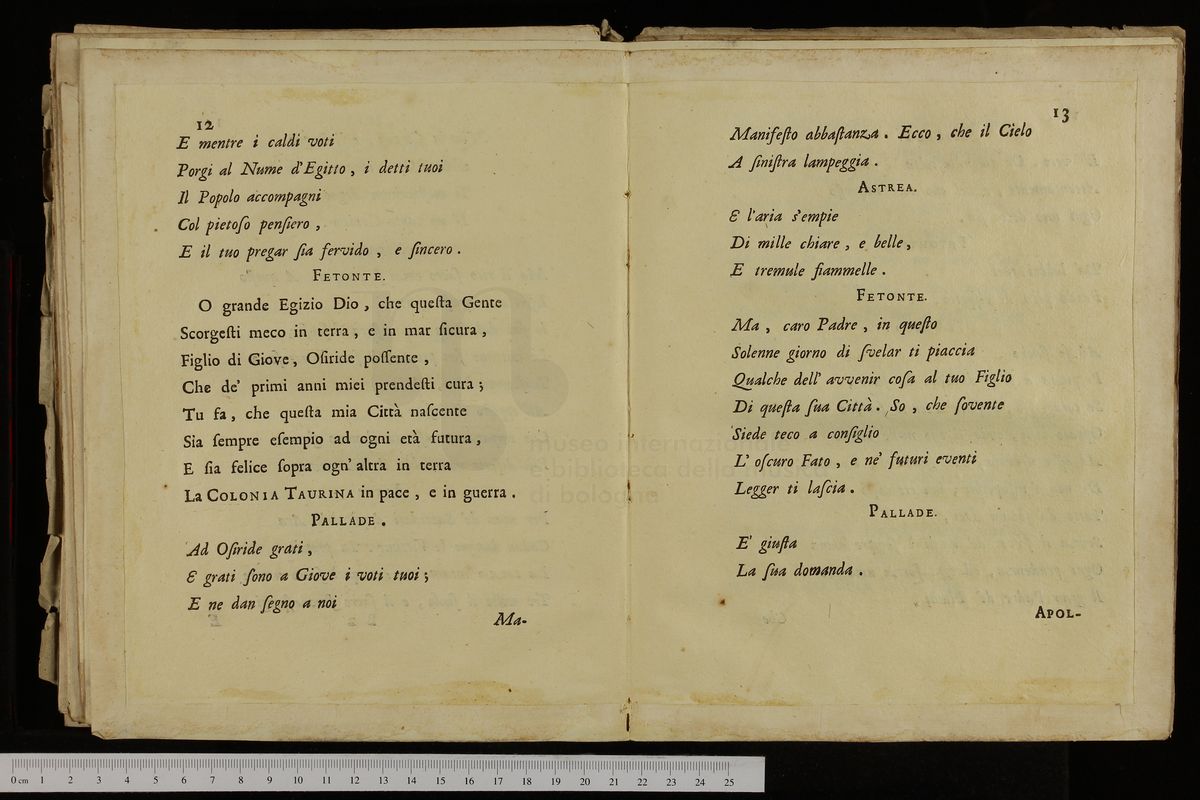 12
E mentre i caldi voti
Porgi al Nume d'Egitto, i detti tuoi
Il Popolo accompagni
Col pietoſo penſiero,
E il tuo pregar ſia fervido, e ſincero.
FETONTE.
O grande Egizio Dio, che queſta Gente
Scorgeſti meco in terra, e in mar ſicura,
Figlio di Giove, Oſiride poſſente,
Che de' primi anni miei prendeſti cura;
Tu fa, che queſta mia Città naſcente
Sia ſempre eſempio ad ogni età futura,
E ſia felice ſopra ogn' altra in terra
La COLONIA TAURINA in pace, e in guerra.
PALLADE.
Ad Oſiride grati,
E grati ſono a Giove i voti tuoi;
E ne dan ſegno a noi
Ma-
13
Manifeſto abbaſtanza. Ecco, che il Cielo
A ſiniſtra lampeggia.
ASTREA.
E l'aria s'empie
Di mille chiare, e belle,
E tremule fiammelle.
FETONTE.
Ma, caro Padre, in queſto
Solenne giorno di ſvelar ti piaccia
Qualche dell' avvenir coſa al tuo Figlio
Di queſta ſua Città. So, che ſovente
Siede teco a conſiglio
L' oſcuro Fato, e ne' futuri eventi
Legger ti laſcia.
PALLADE.
E' giuſta
La ſua domanda.
APOL-
museo internazionale
e biblioteca della musica
di bologna
0 cm 1 2 3 4 5 6 7 8 9 10 11 12 13 14 15 16 17 18 19 20 21 22 23 24 25